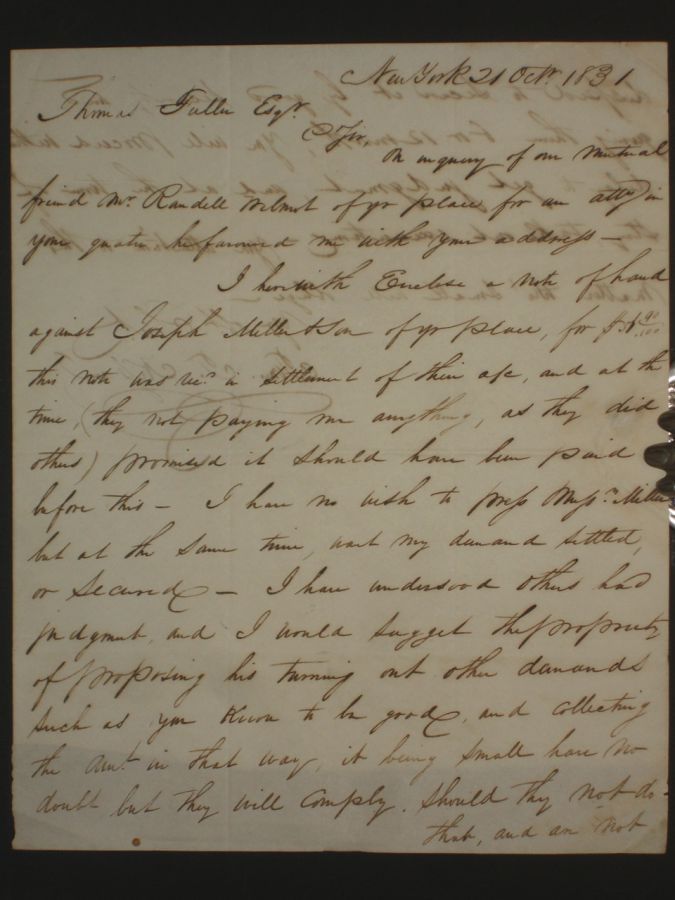 New York 21 Octr. 1831
Thomas Fuller Esqr.
Sir
On inquiry of our mutual
friend Mr. Randell Wilmot of yr place for an atty in
your quarter he favoured me with your address —
I herewith Enclose a note of hand
against Joseph Miller & Son of yr place, for $
this note was recd in settlement of their a/c, and at the
time, (they not paying me anything, as they did
others) promised it should have been paid
before this — I have no wish to press Messrs. Miller
but at the same time, want my demand settled,
or secured — I have undersood others had
judgment, and I would suggest the propriety
of proposing his turning out other demands
such as you know to be good, and collecting
the amt. in that way, it being small have no
doubt but they will comply. Should they not do
that, and are not